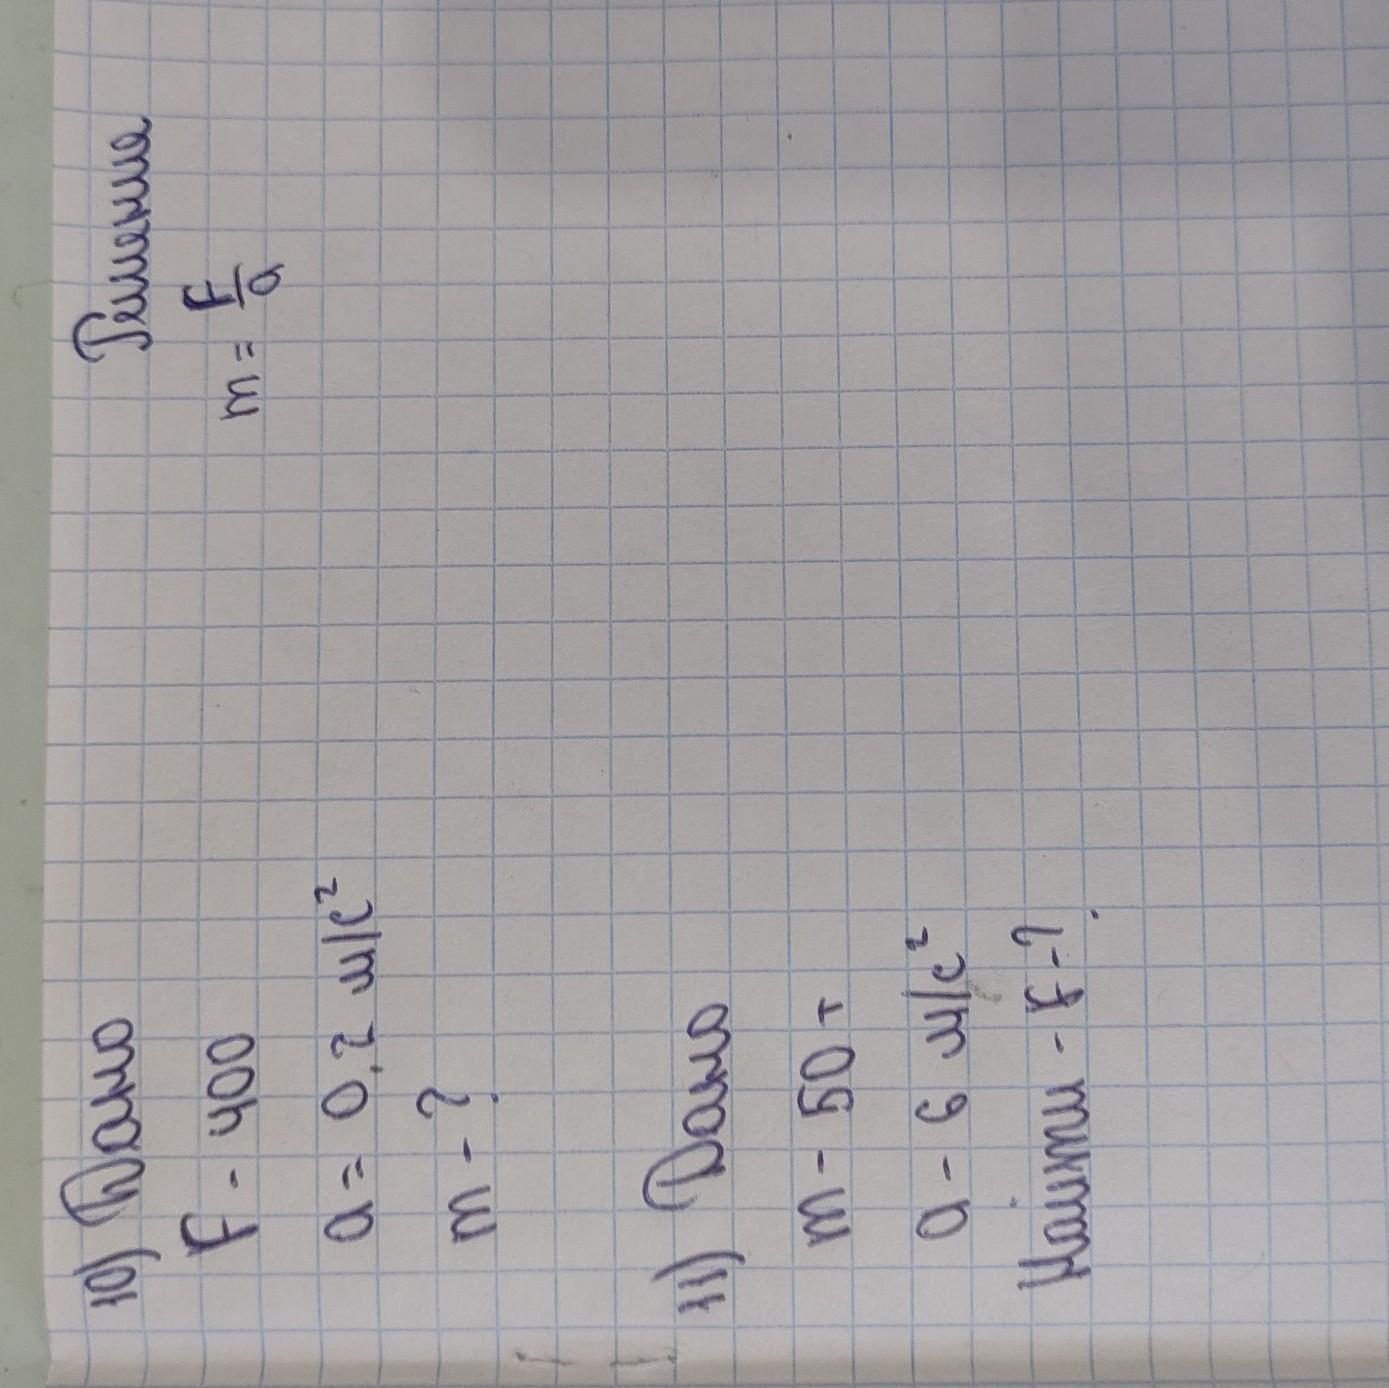 10) Дано
Решение
F - 400
m = F/a
a = 0,2 м/с²
m - ?
11) Дано
m - 50 т
a - 6 м/с²
Найти - F - ?